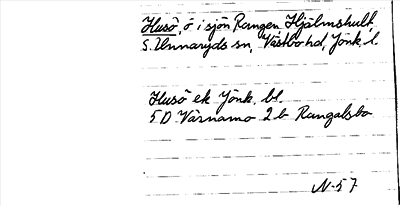 Husö, ö i sjön Rangen Hjälmshult,
S. Unnaryds sn, Västbo hd, Jönk. l.
Husö ek Jönk. bl.
5 D Värnamo 2 b Rangalsbo
N-57